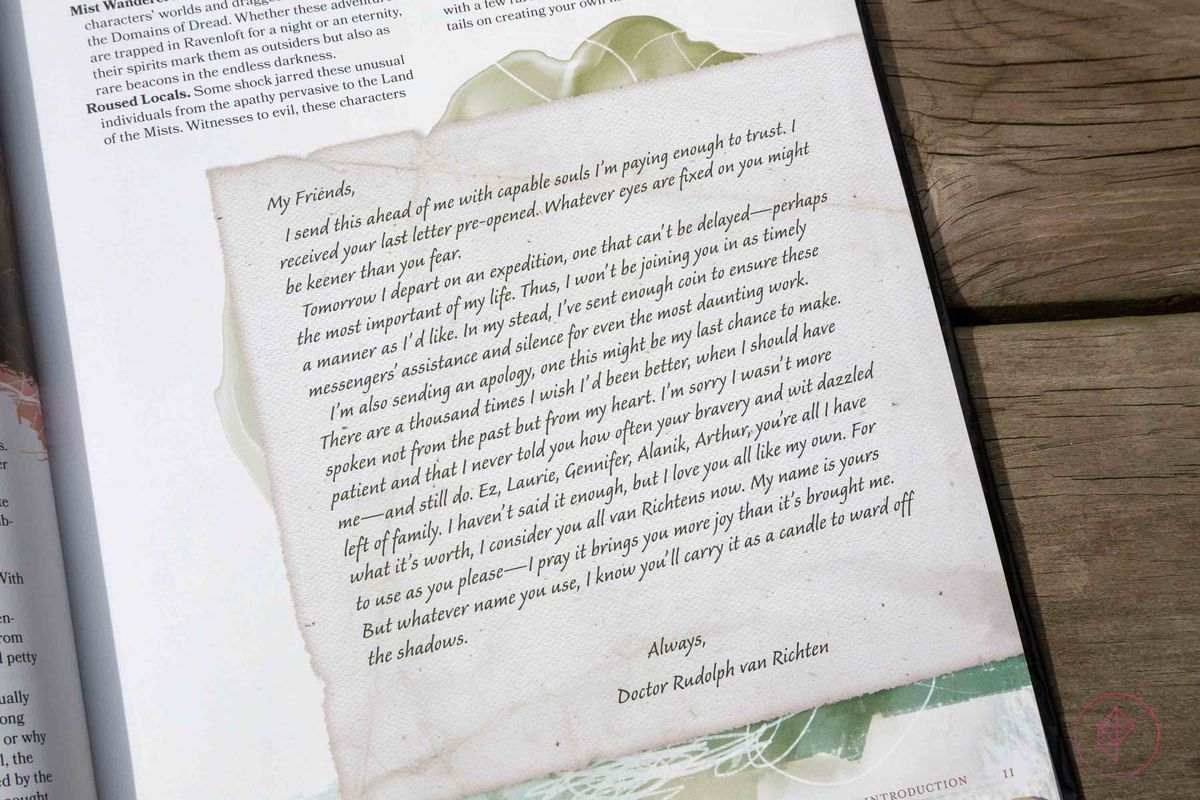 Mist Wanderers.
characters' worlds and dragged
the Domains of Dread. Whether these adventurers
are trapped in Ravenloft for a night or an eternity,
their spirits mark them as outsiders but also as
rare beacons in the endless darkness.
Roused Locals. Some shock jarred these unusual
individuals from the apathy pervasive to the Land
of the Mists. Witnesses to evil, these characters
with a few
tails on creating your own
My Friends,
I send this ahead of me with capable souls I'm paying enough to trust. I
received your last letter pre-opened. Whatever eyes are fixed on you might
be keener than you fear.
Tomorrow I depart on an expedition, one that can't be delayed—perhaps
the most important of my life. Thus, I won't be joining you in as timely
a manner as I'd like. In my stead, I've sent enough coin to ensure these
messengers' assistance and silence for even the most daunting work.
I'm also sending an apology, one this might be my last chance to make.
There are a thousand times I wish I'd been better, when I should have
spoken not from the past but from my heart. I'm sorry I wasn't more
patient and that I never told you how often your bravery and wit dazzled
me—and still do. Ez, Laurie, Gennifer, Alanik, Arthur, you're all I have
left of family. I haven't said it enough, but I love you all like my own. For
what it's worth, I consider you all van Richtens now. My name is yours
to use as you please—I pray it brings you more joy than it's brought me.
But whatever name you use, I know you'll carry it as a candle to ward off
the shadows.
Always,
Doctor Rudolph van Richten
With
petty
or why
the
by the
INTRODUCTION 11